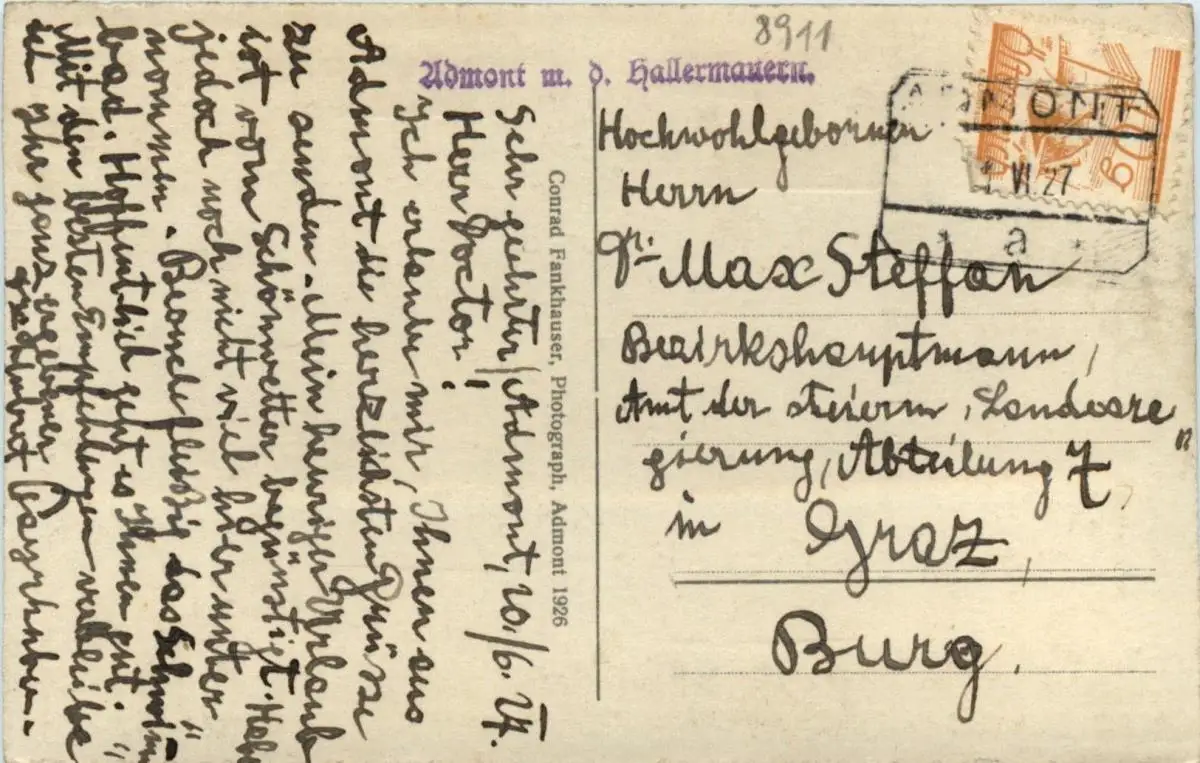 8911
Admont m. d. Hallermauern.
Sehr geehrter Admont, 20./6. 27.
Herr Doctor!
Ich erlaube mir, Ihnen aus
Admont die herzlichsten Grüsse
zu senden. Mein heuriger Urlaub
ist vom Schönwetter begünstigt. Habe
jedoch noch nicht viel hier unter"
nommen. Besuche fleißig das Schwimm
bad. Hoffentlich geht es Ihnen gut.
Mit den besten Empfehlungen verbleibe"
ich Ihr ganz ergebener
Conrad Fankhauser, Photograph, Admont 1926
Hochwohlgeboren
Herrn
Dr. Max Steffan
Bezirkshauptmann,
Amt der steierm. Landesre"
gierung, Abteilung 7
in Graz,
Burg.
ADMONT
VI.27
a